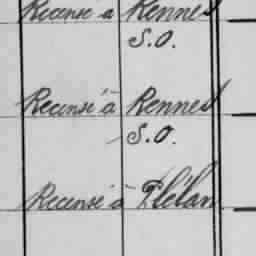 Recensé à Rennes
S.O.
Recensé à Rennes
S.O.
Recensé à Plélan